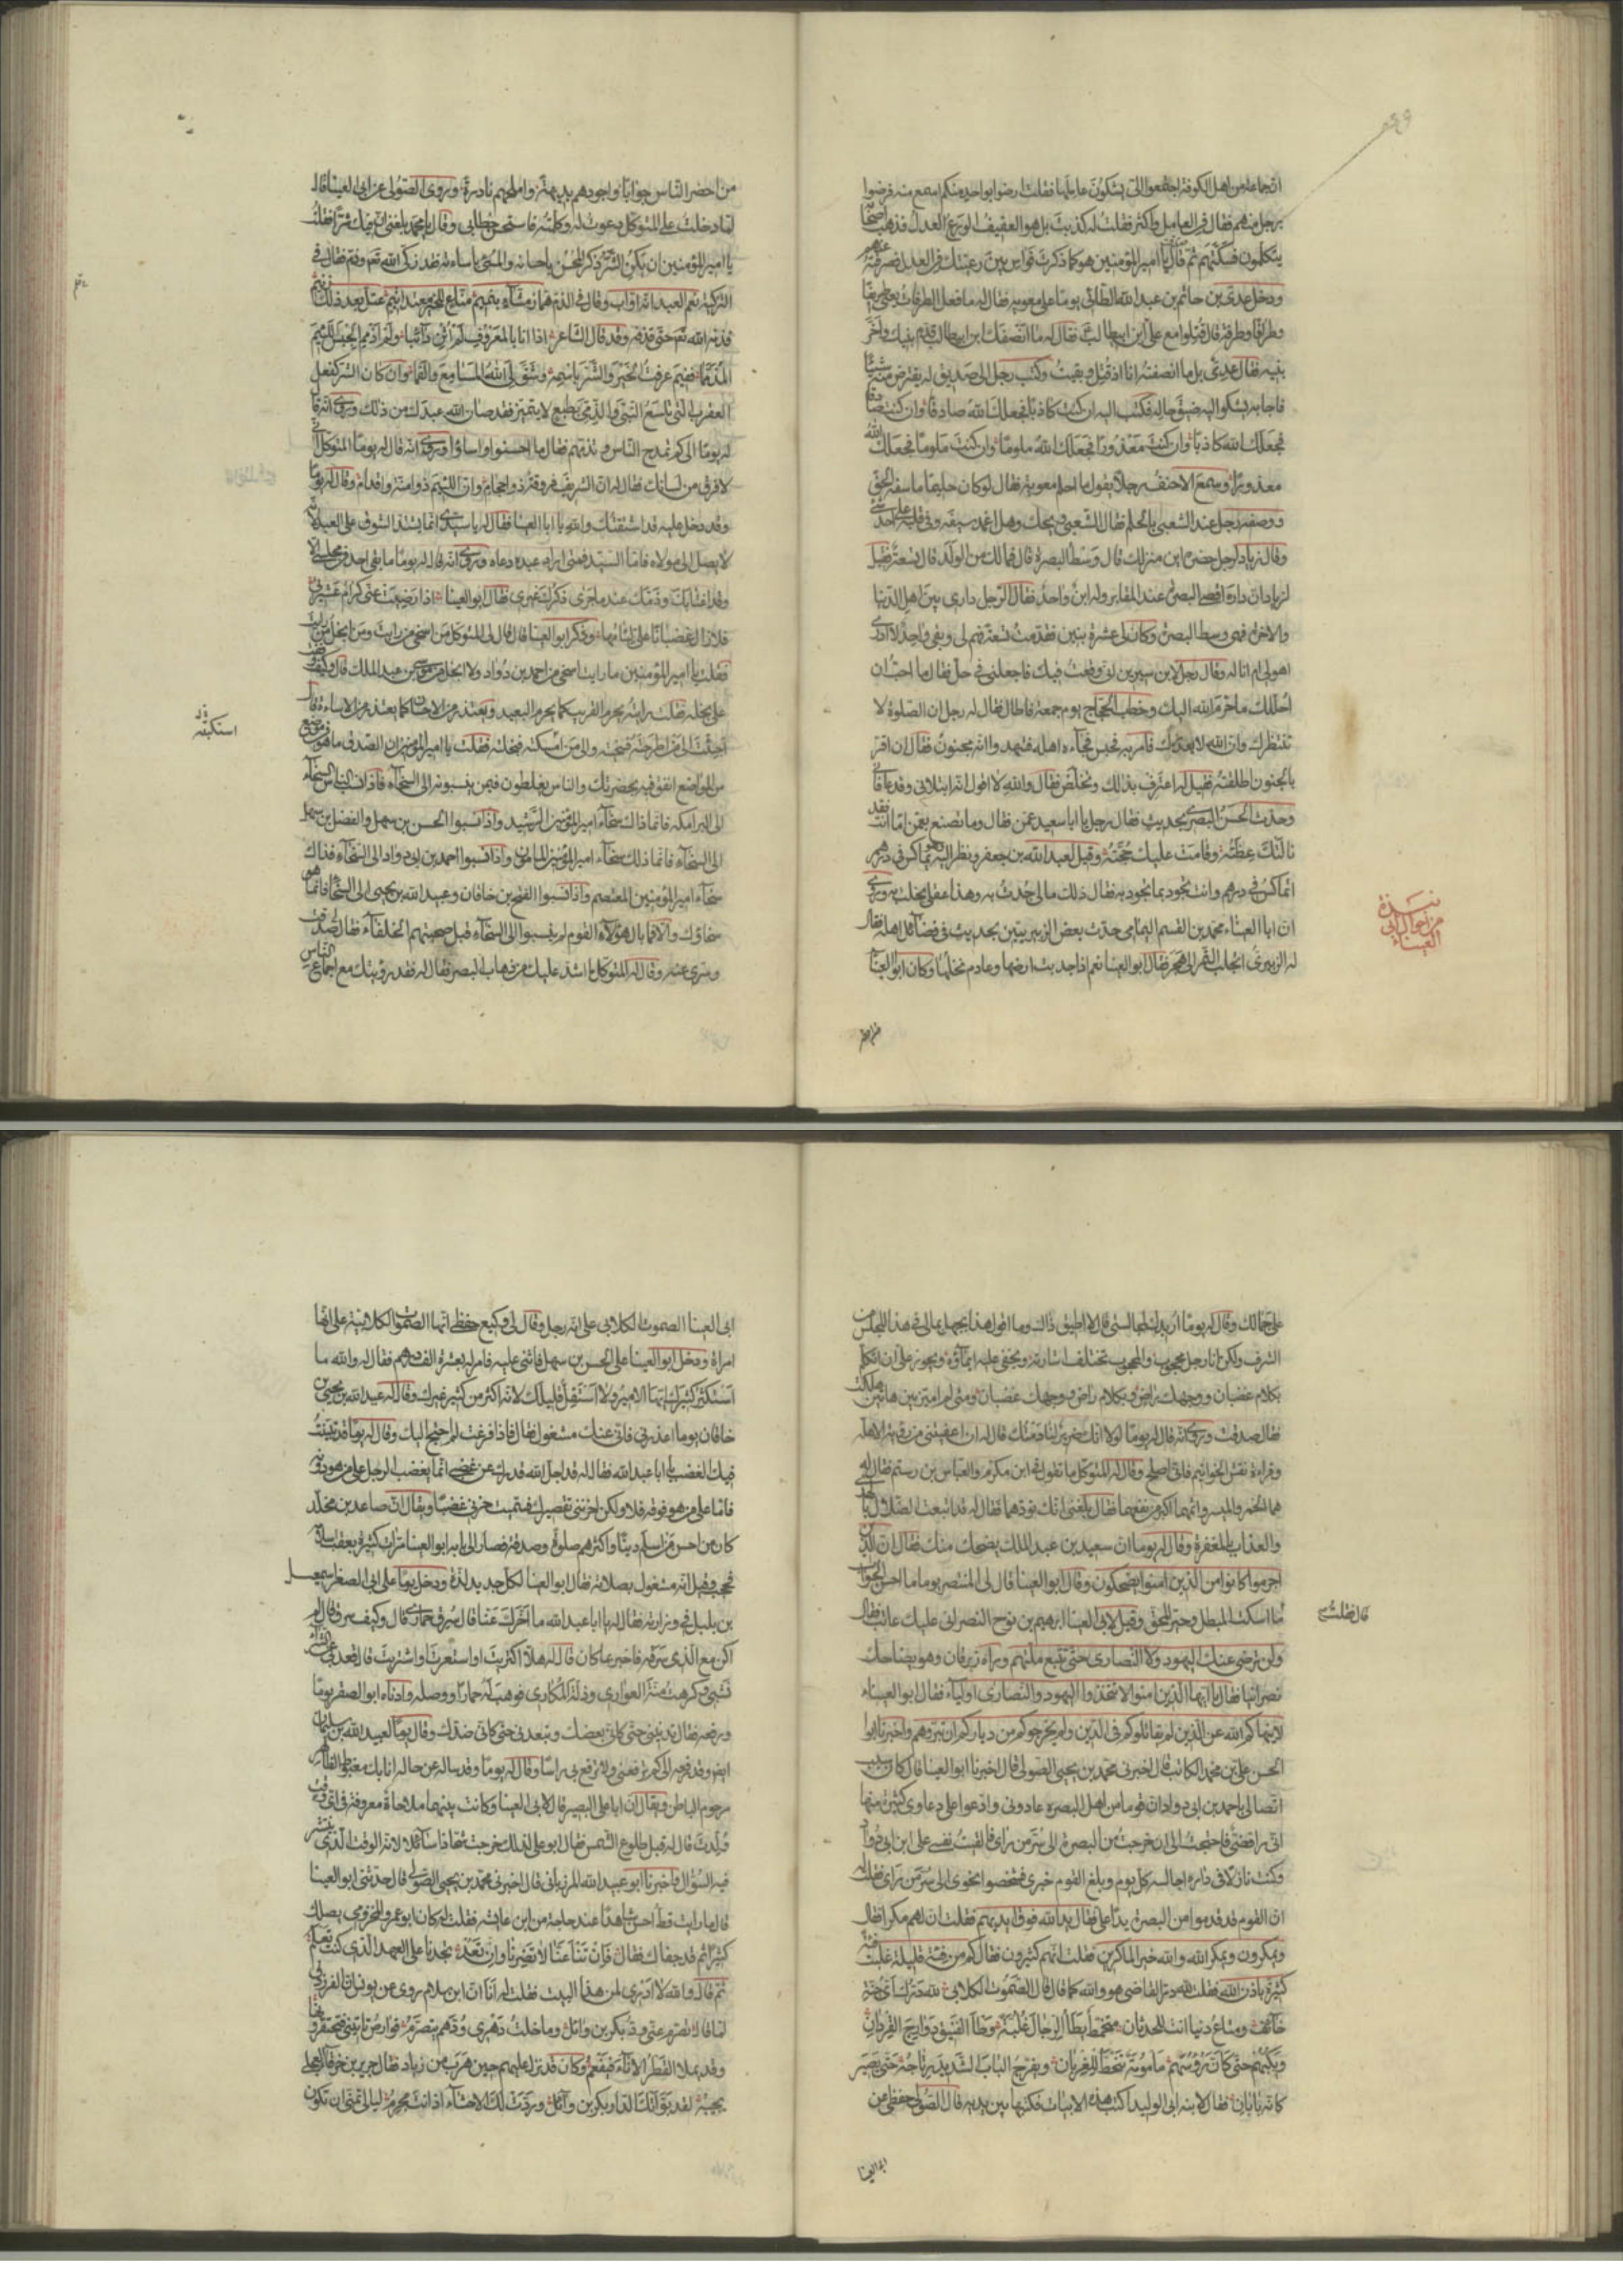 ان جماعة من اهل الكوفة اجتمعوا الى يشكون عاملها فقلت ارضوا بواحد منكم اسمع منه فرضوا
برجل منهم فقال في العامل واكثر فقلت له كذبت بل هو العفيف الورع العدل فذهب اصحابه
يتكلمون فسكتهم ثم قال يا امير المؤمنين هو كما ذكرت فواس بين رعيتك في العدل فصرفته عنهم
ودخل عدى بن حاتم بن عبد الله الطائى يوما على معويه فقال له ما فعل الطرفات يعنى طريفا
وطرافا وطرفة قال قتلوا مع على بن ابيطالب فقال له ما انصفك ابن ابيطالب قدم بنيك واخر
بنيه فقال عدى بل ما انصفته انا اذ قتل وبقيت وكتب رجل الى صديق له يقترض منه شيئا
فاجابه يشكو اليه ضيق حاله فكتب اليه ان كنت كاذبا فجعلك الله صادقا وان كنت صادقا
فجعلك الله كاذبا وان كنت معذورا فجعلك الله ملوما وان كنت ملوما فجعلك الله
معذورا وسمع الاحنف رجلا يقول ما احلم معوية فقال لو كان حليما ما سفه الحق
ووصف رجل عند الشعبى بالحلم فقال الشعبى ويحك وهل اغمد سيفه وفى قلبه على احد شئ
وقال زياد لرجل حضره اين منزلك قال وسط البصرة قال فما لك من الولد قال تسعة فقيل
لزياد ان داره اقصى البصرة عند المقابر وله ابن واحد فقال الرجل دارى بين اهل الدنيا
والاخرة فهى وسط البصرة وكان لى عشرة بنين فقدمت تسعة فهم لى وبقى واحد لا ادرى
اهو لى ام انا له وقال رجل لابن سيرين انى وقعت فيك فاجعلنى فى حل فقال ما احب ان
احلك ما حرم الله اليك وخطب الحجاج يوم جمعة فاطال فقال له رجل ان الصلوة لا
تنتظرك وان الله لا يعذرك فامر به فحبس فجاءه اهله فشهدوا انه مجنون فقال ان اقر
بالجنون اطلقته فقيل له اعترف بذلك وتخلص فقال والله لا اقول انه ابتلانى وقد عافانى
وحدث الحسن البصرى بحديث فقال رجل يا ابا سعيد عمن فقال وما تصنع بعمن اما انت فقد
نالتك عظته وقامت عليك حجته وقيل لعبد الله بن جعفر ونظر اليه يماكس فى درهم
اتماكس فى درهم وانت تجود بما تجود به فقال ذلك مالى جدت به وهذا عقلى بخلت به وروى
ان ابا العيناء محمد بن القسم اليمامى حدث بعض الزبيريين بحديث فى فضائل اهله فقال
له الزبيرى اتجلب التمر الى هجر فقال ابو العينا نعم اذا جدبت ارضها وعادم نخلها وكان ابو العينا
نبذة
من اجوبة ابى
العيناء
من احضر الناس جوابا واجودهم بديهة واملحهم نادرة وروى الصولى عن ابى العينا قال
لما دخلت على المتوكل دعوت له وكلمته فاستحسن خطابى وقال يا محمد بلغنى ان فيك شرا فقلت
يا امير المؤمنين ان يكن الشر ذكر المحسن باحسانه والمسئ باساءته فقد زكى الله تعالى وذم فقال فى
التزكية نعم العبد انه اواب وقال فى الذم هماز مشاء بنميم مناع للخير معتد اثيم عتل بعد ذلك زنيم
فذمه الله تعالى حتى قذفه وقد قال الشاعر اذا انا بالمعروف لم اثن دائبا ولم اذمم الجبس اللئيم
المذمما ففيم عرفت الخير والشر باسمه وشق لى الله المسامع والفما وان كان الشر كفعل
العقرب التى تلسع السنى والدنى بطبع لا يتميز فقد صان الله عبدك من ذلك وروى انه قال
له يوما الى كم تمدح الناس وتذمهم فقال ما احسنوا واساؤا وروى انه قال له يوما المتوكل انى
لافرق من لسانك فقال له ان الشريف فروقة ذو احجام وان اللئيم ذو امنة واقدام وقال له يوما
وقد دخل عليه قد اشتقتك والله يا ابا العينا فقال له يا سيدى انما يشتد الشوق على العبد لانه
لا يصل الى مولاه فاما السيد فمتى اراد عبده دعاه وروى انه قال له يوما ما بقى احد فى مجلسى الا
وقد اغتابك وذمك عندما جرى ذكرك غيرى فقال ابو العينا اذا رضيت عنى كرام عشيرتى
فلا زال غضبانا على لئامها وذكر ابو العينا قال قال لى المتوكل من اسخى من رايت ومن ابخل من رايت
فقلت يا امير المؤمنين ما رايت اسخى من احمد بن ابى دواد ولا ابخل من موسى بن عبد الملك قال وكيف وقفت
على بخله فقلت رايته يحرم القريب كما يحرم البعيد ويعتذر من الاحسان كما يعتذر من الاساءة فقال
استكفيته
الى البرامكة فانما ذلك سخاء امير المؤمنين الرشيد واذا نسبوا الحسن بن سهل والفضل بن سهل
الى السخاء فانما ذلك سخاء امير المؤمنين المامون واذا نسبوا احمد بن ابى دواد الى السخاء فذاك
سخاء امير المؤمنين المعتصم واذا نسبوا الفتح بن خاقان وعبيد الله بن يحيى الى السخاء فانما هو
سخاؤك والا فما بال هؤلاء القوم لم ينسبوا الى السخاء قبل صحبتهم الخلفاء فقال لى صدقت
وسرى عنه وقال له المتوكل ما اشد عليك من ذهاب البصر فقال له فقد رؤيتك مع اجماع الناس
على جمالك وقال له يوما اريدك لمجالستى قال لا اطيق ذلك وما اقول هذا بجهل بمالى فى هذا المجلس من
الشرف ولكن انا رجل محجوب والمحجوب تختلف اشارته ويخفى عليه ايماؤه ويجوز على ان اتكلم
بكلام غضبان ووجهك راض وبكلام راض ووجهك غضبان ومتى لم اميز بين هاتين هلكت
فقال صدقت وروى انه قال له يوما لولا انك ضرير لنادمتك قال له ان اعفيتنى من رؤية الاهلة
وقراءة نقش الخواتيم فانى اصلح وقال له المتوكل ما تقول فى ابن مكرم والعباس بن رستم فقال له
هما الخمر والميسر واثمهما اكبر من نفعهما فقال بلغنى انك تودهما فقال له قد ابتعت الضلال بالهدى
والعذاب بالمغفرة وقال له يوما ان سعيد بن عبد الملك يضحك منك فقال ان الذين
اجرموا كانوا من الذين امنوا يضحكون وقال ابو العينا قال لى المنتصر يوما ما احسن الجواب
قال فقلت
ما اسكت المبطل وحير المحق وقيل لابى العينا ابراهيم بن نوح النصرانى عليك عاتب فقال
ولن ترضى عنك اليهود ولا النصارى حتى تتبع ملتهم وراه زبرقان وهو يضاحك
نصرانيا فقال يا ايها الذين امنوا لا تتخذوا اليهود والنصارى اولياء فقال ابو العيناء
لا ينهاكم الله عن الذين لم يقاتلوكم فى الدين ولم يخرجوكم من دياركم ان تبروهم واخبرنا ابو
الحسن على بن محمد الكاتب قال اخبرنى محمد بن يحيى الصولى قال اخبرنا ابو العينا قال كان سبب
اتصالى باحمد بن ابى دواد ان قوما من اهل البصرة عادونى وادعوا على دعاوى كثيرة منها
انى رافضى فاحتجت الى ان خرجت من البصرة الى سر من راى فالقيت نفسى على ابن ابى دواد
وكنت نازلا فى داره اجالسه كل يوم وبلغ القوم خبرى فشخصوا نحوى الى سر من راى فقلت له
ان القوم قد قدموا من البصرة يدا على فقال يد الله فوق ايديهم فقلت ان لهم مكرا فقال
ويمكرون ويمكر الله والله خير الماكرين فقلت انهم كثيرون فقال كم من فئة قليلة غلبت فئة
كثيرة باذن الله فقلت لله در القاضى هو والله كما قال الصموت الكلابى لله درك اى جنة
خائف ومتاع دنيا انت للحدثان متخمط يطأ الرجال غلبة وطأ الفنيق دوارج القردان
ويكبهم حتى كان رؤسهم مامومة تنحط للغربان ويفرج الباب الشديد رتاجه حتى يصير
كانه بابان فقال لابنه ابى الوليد اكتب هذه الابيات فكتبها بين يديه قال الصولى حفظى عن
ابى العينا
ابى العينا الصموت الكلابى على انه رجل وقال لى وكيع حفظى انها الصموت الكلابية على انها
امراة ودخل ابو العينا على الحسن بن سهل فاثنى عليه فامر له بعشرة الف درهم فقال له والله ما
استكثر كثيرك ايها الامير ولا استقل قليلك لانه اكثر من كثير غيرك وقال له عبيد الله بن يحيى بن
خاقان يوما اعذرنى فانى عنك مشغول فقال فاذا فرغت لم احتج اليك وقال له يوما قد تبينت
فيك الغضب يا ابا عبد الله فقال له قد اجل الله قدرك عن غضبى انما يغضب الرجل على من هو دونه
فاما على من هو فوقه فلا ولكن احزننى تقصيرك فسميت حزنى غضبا ويقال ان صاعد بن مخلد
كان من احسن من اسلم دينا واكثرهم صلوة وصدقة فصار الى بابه ابو العينا مرات كثيرة بعقب اسلامه
فحجب وقيل انه مشغول بصلاته فقال ابو العينا لكل جديد لذة ودخل يوما على ابى الصقر اسمعيل
بن بلبل فى وزارته فقال له يا ابا عبد الله ما اخرك عنا قال سرق حمارى قال وكيف سرق قال لم
اكن مع الذى سرقه فاخبر بما كان قال له هلا اكتريت او استعرت او اشتريت قال قعد بى عن الشراء
نشبى وكرهت منة العوارى وذلة المكارى فوهب له حمارا ووصله وادناه ابو الصقر يوما
ورفعه فقال تدنينى حتى كانى بعضك وتبعدنى حتى كانى ضدك وقال يوما لعبيد الله بن سليمان
الى كم ترفعنى ولا ترفع بى راسا وقال له يوما وقد ساله عن حاله انا بك مغبوط الظاهر
مرحوم الباطن ويقال ان ابا على البصير قال لابى العينا وكانت بينهما ملاحاة معروفة فى اى وقت
ولدت قال له قبل طلوع الشمس فقال ابو على لذلك خرجت شحاذا سائلا لانه الوقت الذى ينتشر
فيه السؤال واخبرنا ابو عبيد الله المرزبانى قال اخبرنى محمد بن يحيى الصولى قال حدثنى ابو العينا
قال ما رايت قط احسن شاهدا عند حاجة من ابن عائشة فقلت له كان ابو عمرو المخزومى يصلك
كثيرا ثم قد جفاك فقال فان تنأ عنا لا تضرنا وان تعد تجدنا على العهد الذى كنت تعلم
ثم قال والله لا ادرى لمن هذا البيت فقلت له انا ان ابن سلام روى عن يونس ان الفرزدق
لما قال تصرم عنى ود بكر بن وائل وما خلت دهرى ودهم يتصرم قوارص تاتينى فتحتقرونها
وقد يملا القطر الاناء فيفعم وكان قد نزل عليهم حين هرب من زياد فقال جرير بن خرقاء العجلى
يجيبه لقد بوأتك الدار بكر بن وائل وردت لك الاحشاء اذ انت مجرم ليالى تمنى ان تكون